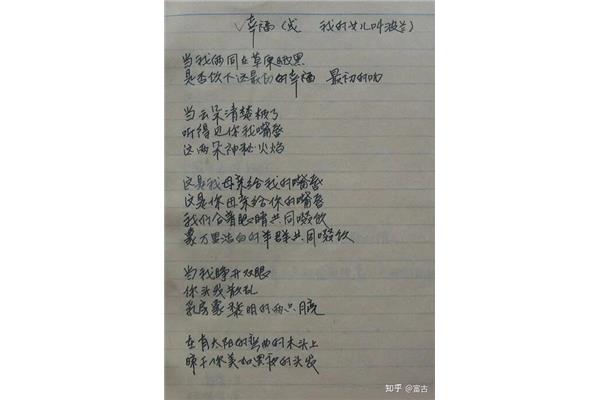 幸福(或 我的女儿叫波兰)
当我俩同在草原晒黑
是否饮下这最初的幸福 最初的吻
当云朵清楚极了
听得见你我嘴唇
这两朵神秘火焰
这是我母亲给我的嘴唇
这是你母亲给你的嘴唇
我们合着眼睛共同啜饮
象万里洁白的羊群共同啜饮
当我睁开双眼
你头发散乱
乳房象黎明的两只月亮
在有太阳的弯曲的木头上
晾干你美如黑夜的头发
知乎 @富古